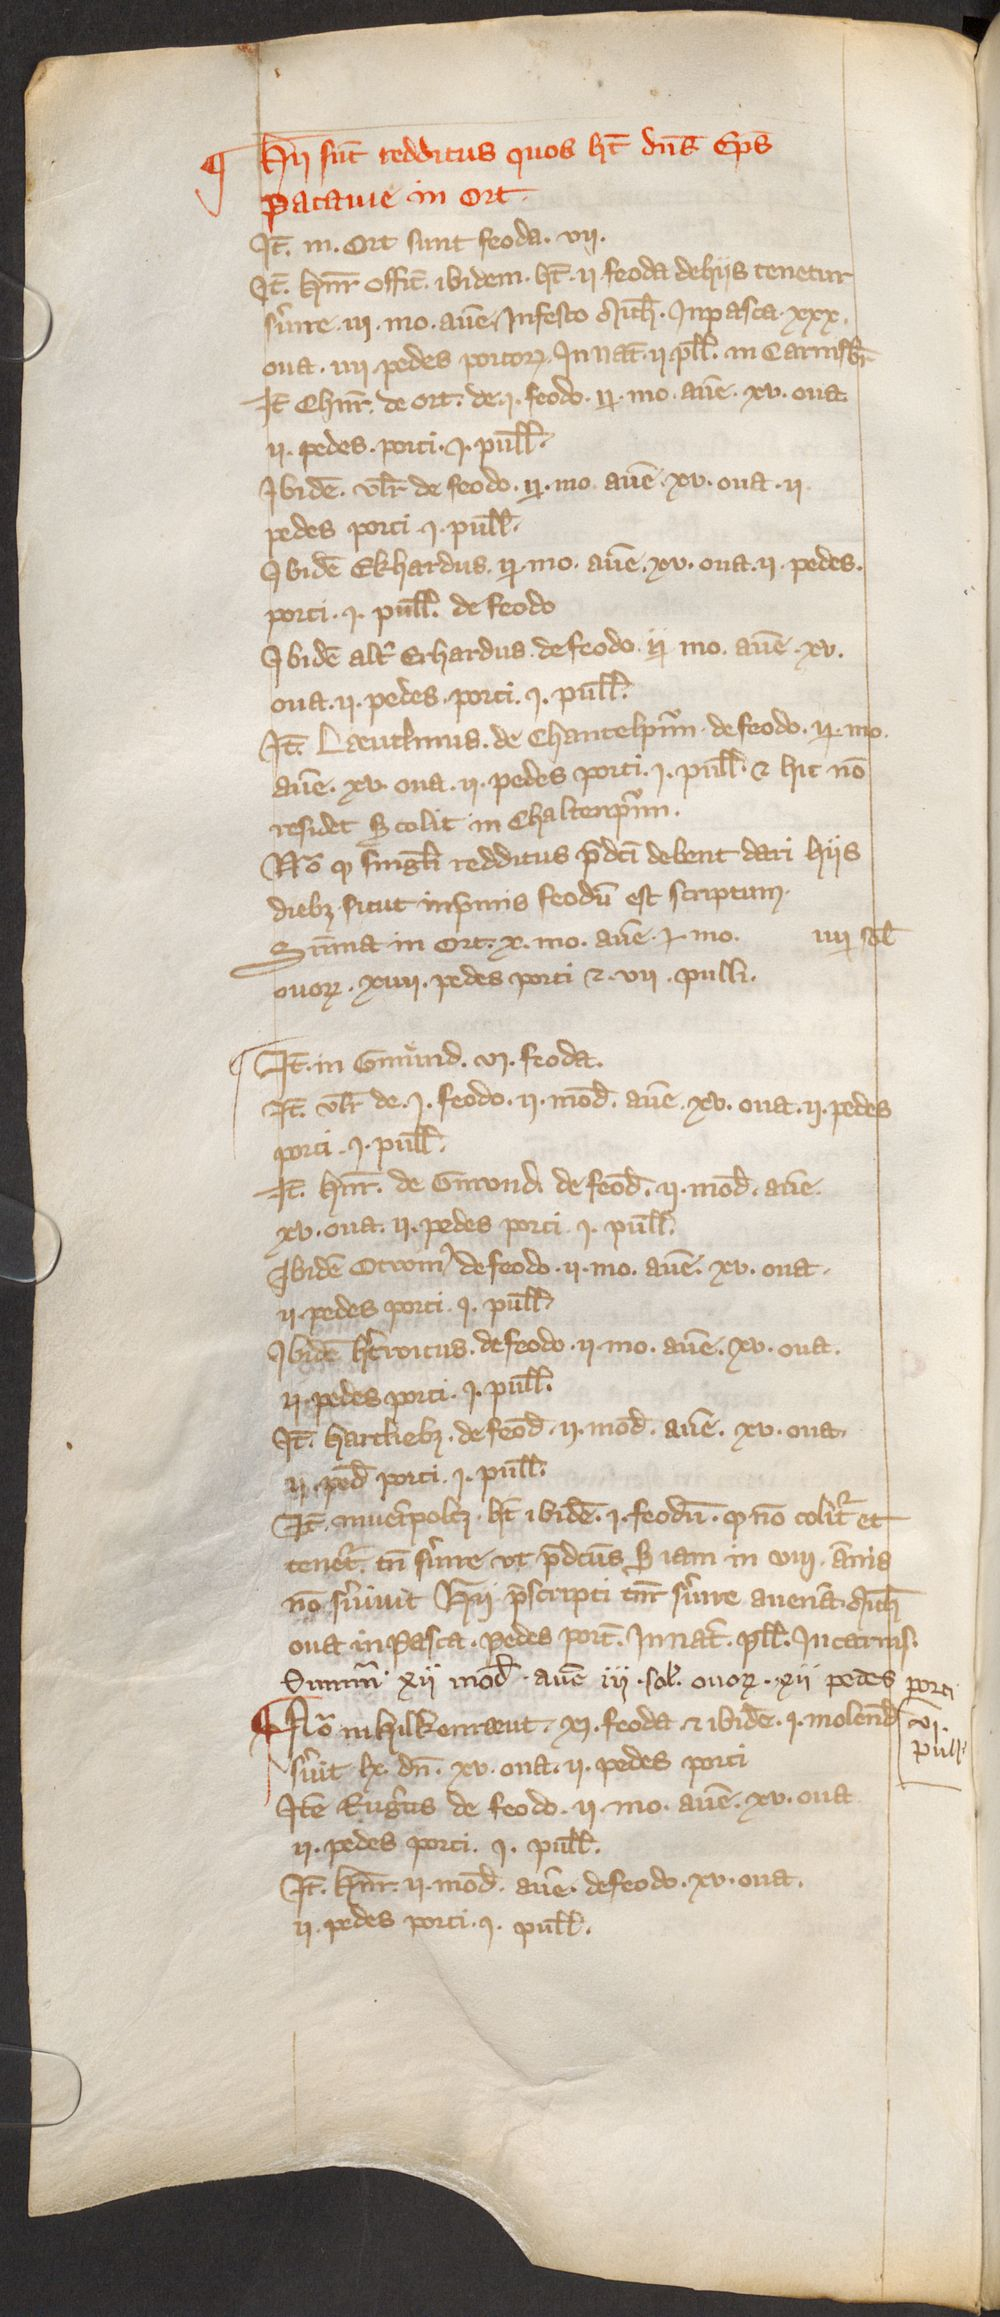 ¶ Hii su̅t redditus quos ht̅ dn̅s Ep̅s
Patauie in Ort.
It̅. in. Ort sunt feoda. vii.
It̅. Hnr̅ offic̅. ibidem. ht̅. ii feoda de hiis tenetur
s̓uire. iii. mo. aue̅. In festo Mich̅. In pasca. xxx.
oua. iiii. pedes porcoꝝ. In nat̅. ii. pll̅. in Carnisbr̅
It̅ Chnr̅. de Ort. de. i. feodo. mo. aue̅. xv. oua.
ii. pedes. porci. i. pull̅.
Ibide̅. vlr̅ de feodo. mo. aue̅. xv. oua. ii.
pedes porci. i. pull̅.
Ibide̅ Ekhardus. mo. aue̅. xv. oua. ii. pedes.
porci. i. pull̅. de feodo
Ibide̅ alt̓ Erhardus. de feodo. mo. aue̅. xv.
oua. ii. pedes. porci. i. pull̅.
It̅. Laeutlinus. de de feodo. mo.
aue̅. xv. oua. ii. pedes porci. i. pull̅. ⁊ hic no̅
residet ꟍ colit in
No̅ ꝙ singl̅i redditus p̅dc̅i debent dari hiis
diebꝫ sicut inp̓mis feodu̅ est scriptum.
Su̅ma in Ort. x. mo. aue̅. mo. sol̅
ouoꝝ. xiiii. pedes porci ⁊. vii. pulli.
¶ It̅. in Gmund. vi. feoda.
It̅. vlr̅ de. i. feodo. ii. mod̅. aue̅. xv. oua. ii. pedes
porci. i. pull̅.
It̅. Hnr̅. de Gmvnd. de feod̅. ii. mod̅. aue̅.
xv. oua. ii. pedes porci. i. pull̅.
Ibide̅ de feodo. ii. mo. aue̅. xv. oua.
ii. pedes porci. i. pull̅.
Ibide̅ de feodo. ii. mo. aue̅. xv. oua.
ii. pedes porci. i. pull̅.
It̅. Hartliebꝫ. de feod̅. ii. mod̅. aue̅. xv. oua.
ii. ped̅ porci. i. pull̅.
It̅. ht̅ ibide̅. i. feodu̅. ꝙ no̅ colit̓ et
tenet̓. tn̅ s̓uire vt p̅dc̅us ꟍ iam in viii. a̅nis
no̅ s̓uiuit Hii p̅scripti tnr̅ s̓uire auena̅ Mich̅
oua in Pasca. Pedes porc̅. In nat̅. pll̅. In carnis.
Summ̅ xii mod̅. aue̅ iii. sol̅. ouoꝝ. xii pedes porci
vi.
pull̅.
¶ No̅ in feoda ⁊ ibide̅. i. molend̅
s̓uit lx. dn̅. xv. oua. ii. pedes porci
Ite̅ Rug̓us de feodo. ii. mo. aue̅. xv. oua
ii. pedes porci. i. pull̅.
It̅. Hnr̅. ii. mod̅. aue̅. de feodo. xv. oua.
ii. pedes porci. i. pull̅.